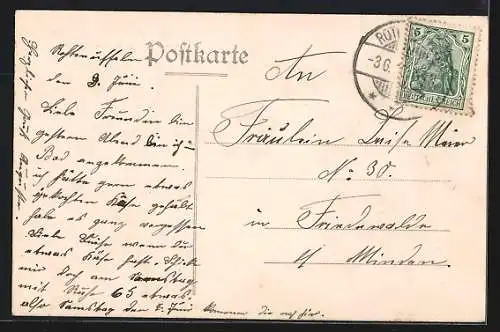 Postkarte
Rothenuffeln
den 3. Juni.
Liebe Freundin bin
gestern Abend den in
Bad angekommen.
ich hätte gern etwas
gekochten Käse gehabt
habe es ganz vergessen
Liebe Luise wenn du
etwas Käse hast. Schicke
mir doch am Samstag
mit Käse 65 etwas.
also Samstag den 8. Juni kommen die nach hier.
An
Fräulein Luise Meier
No 30.
in Friedewalde
b/ Minden.
5 5
DEUTSCHES REICH
ROT
-3.6.